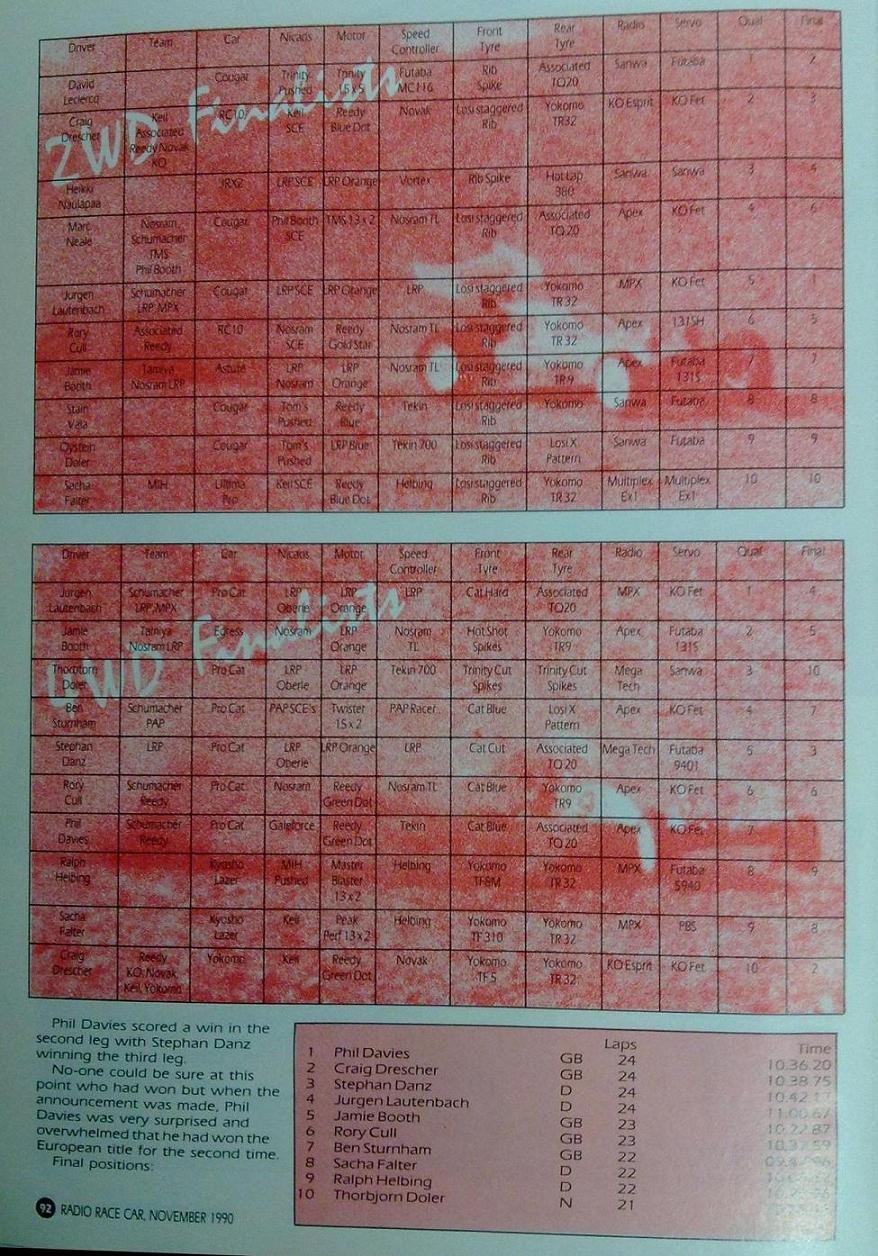 2WD Finalists
Driver Team Car Nicads Motor Speed Controller Front Tyre Rear Tyre Radio Servo Qual Final
David Leclercq Cougar Trinity Pushed Trinity 15 x 5 Futaba MC116 Rib Spike Associated TQ20 Sanwa Futaba 1 2
Craig Drescher Keil Associated Reedy Novak KO RC10 Keil SCE Reedy Blue Dot Novak Losi staggered Rib Yokomo TR32 KO Esprit KO Fet 2 3
Heikki Naulapaa IRX2 LRP SCE LRP Orange Vortex Rib Spike Hot Lap 380 Sanwa Sanwa 3 4
Marc Neale Nosram Schumacher TMS Phil Booth Cougar Phil Booth SCE TMS 13 x 2 Nosram TL Losi staggered Rib Associated TQ 20 Apex KO Fet 4 6
Jurgen Lautenbach Schumacher LRP, MPX Cougar LRP SCE LRP Orange LRP Losi staggered Rib Yokomo TR 32 MPX KO Fet 5 1
Rory Cull Associated Reedy RC10 Nosram SCE Reedy Gold Star Nosram TL Losi staggered Rib Yokomo TR 32 Apex 131SH 6 5
Jamie Booth Tamiya Nosram LRP Astute LRP Nosram LRP Orange Nosram TL Losi staggered Rib Yokomo TR9 Apex Futaba 131S 7 7
Stain Vala Cougar Tom's Pushed Reedy Blue Tekin Losi staggered Rib Yokomo Sanwa Futaba 8 8
Oystein Doler Cougar Tom's Pushed LRP Blue Tekin 700 Losi staggered Rib Losi X Pattern Sanwa Futaba 9 9
Sacha Falter MIH Ultima Pro Keil SCE Reedy Blue Dot Helbing Losi staggered Rib Yokomo TR 32 Multiplex Ex1 Multiplex Ex1 10 10
4WD Finalists
Driver Team Car Nicads Motor Speed Controller Front Tyre Rear Tyre Radio Servo Qual Final
Jurgen Lautenbach Schumacher LRP, MPX Pro Cat LRP Oberle LRP Orange LRP Cat Hard Associated TQ20 MPX KO Fet 1 4
Jamie Booth Tamiya Nosram LRP Egress Nosram LRP Orange Nosram TL Hot Shot Spikes Yokomo TR9 Apex Futaba 131S 2 5
Thorbjorn Doler Pro Cat LRP Oberle LRP Orange Tekin 700 Trinity Cut Spikes Trinity Cut Spikes Mega Tech Sanwa 3 10
Ben Sturnham Schumacher PAP Pro Cat PAP SCE's Twister 15 x 2 PAP Racer Cat Blue Losi X Pattern Apex KO Fet 4 7
Stephan Danz LRP Pro Cat LRP Oberle LRP Orange LRP Cat Cut Associated TQ 20 Mega Tech Futaba 9401 5 3
Rory Cull Schumacher Reedy Pro Cat Nosram Reedy Green Dot Nosram TL Cat Blue Yokomo TR9 Apex KO Fet 6 6
Phil Davies Schumacher Reedy Pro Cat Galeforce Reedy Green Dot Tekin Cat Blue Associated TQ 20 Apex KO Fet 7
Ralph Helbing Kyosho Lazer MIH Pushed Master Blaster 13 x 2 Helbing Yokomo TF8M Yokomo TR 32 MPX Futaba 5940 8 9
Sacha Falter Kyosho Lazer Keil Peak Perf 13 x 2 Helbing Yokomo TF 310 Yokomo TR 32 MPX PBS 9 8
Craig Drescher Reedy KO, Novak, Keil, Yokomo Yokomo Keil Reedy Green Dot Novak Yokomo TF 5 Yokomo TR 32 KO Esprit KO Fet 10 2
Phil Davies scored a win in the
second leg with Stephan Danz
winning the third leg.
No-one could be sure at this
point who had won but when the
announcement was made, Phil
Davies was very surprised and
overwhelmed that he had won the
European title for the second time.
Final positions:
Laps Time
1 Phil Davies GB 24 10.36.20
2 Craig Drescher GB 24 10.38.75
3 Stephan Danz D 24 10.42.17
4 Jurgen Lautenbach D 24 11.00.67
5 Jamie Booth GB 23 10.22.87
6 Rory Cull GB 23 10.37.59
7 Ben Sturnham GB 22
8 Sacha Falter D 22
9 Ralph Helbing D 22
10 Thorbjorn Doler N 21
92 RADIO RACE CAR, NOVEMBER 1990